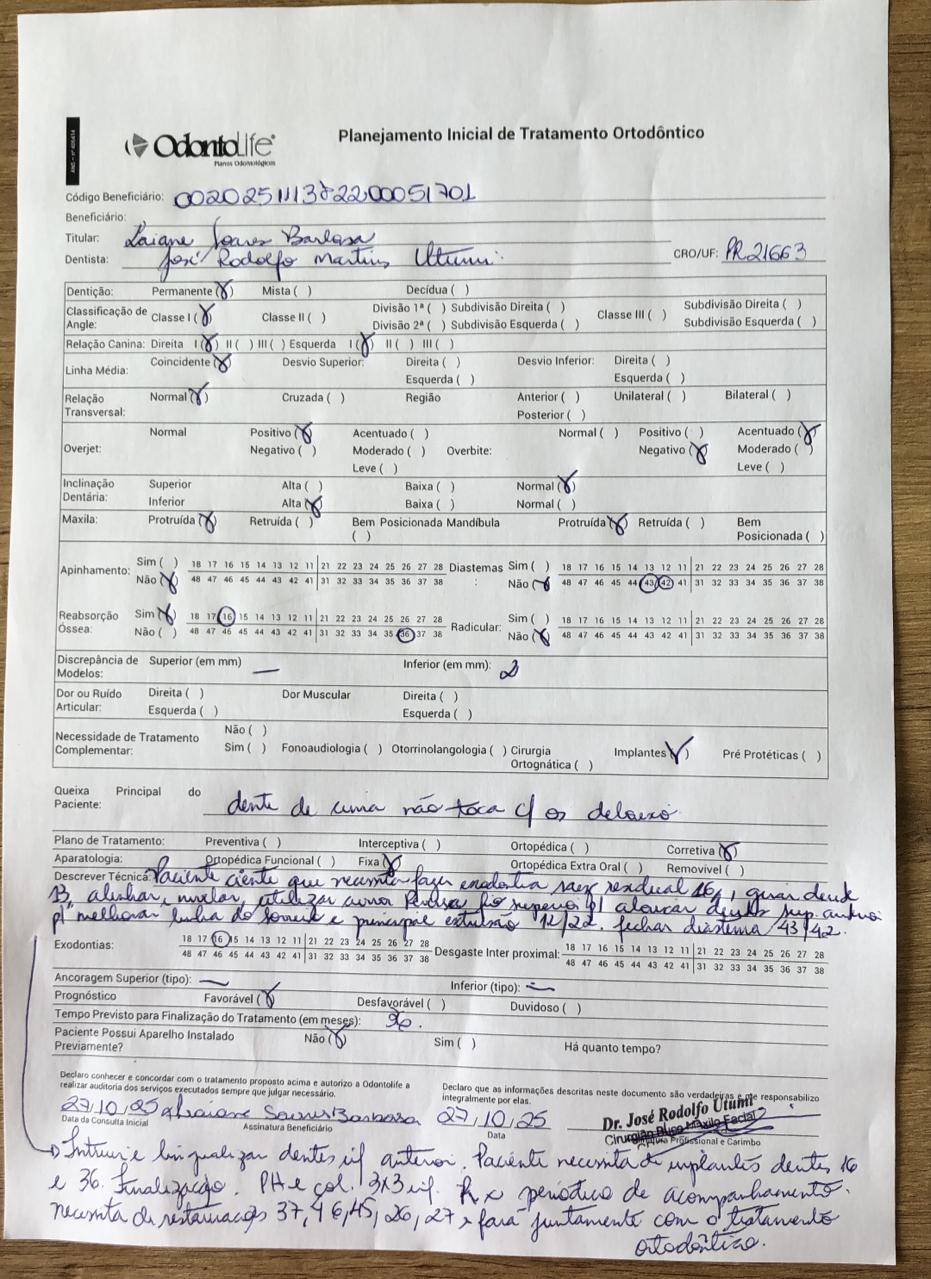 OdontoLife
Planos Odontológicos
Planejamento Inicial de Tratamento Ortodôntico
Código Beneficiário: 00202511137822000 51701
Beneficiário:
Titular: Laiane Soares Barbosa
Dentista: José Rodolfo Martins Utumi CRO/UF: PR21663
Dentição: Permanente (X) Mista ( ) Decídua ( )
Classificação de Angle: Classe I (X) Classe II ( ) Divisão 1ª ( ) Subdivisão Direita ( ) Classe III ( ) Subdivisão Direita ( )
Divisão 2ª ( ) Subdivisão Esquerda ( ) Subdivisão Esquerda ( )
Relação Canina: Direita I (X) II ( ) III ( ) Esquerda I (X) II ( ) III ( )
Linha Média: Coincidente (X) Desvio Superior: Direita ( ) Desvio Inferior: Direita ( )
Esquerda ( ) Esquerda ( )
Relação Transversal: Normal (X) Cruzada ( ) Região Anterior ( ) Unilateral ( ) Bilateral ( )
Posterior ( )
Overjet: Normal Positivo (X) Acentuado ( ) Overbite: Normal ( ) Positivo ( ) Acentuado (X)
Negativo ( ) Moderado ( ) Negativo (X) Moderado ( )
Leve ( ) Leve ( )
Inclinação Dentária: Superior Alta ( ) Baixa ( ) Normal (X)
Inferior Alta (X) Baixa ( ) Normal ( )
Maxila: Protruída (X) Retruída ( ) Bem Posicionada ( ) Mandíbula Protruída (X) Retruída ( ) Bem Posicionada ( )
Apinhamento: Sim ( ) 18 17 16 15 14 13 12 11 21 22 23 24 25 26 27 28 Diastemas: Sim ( ) 18 17 16 15 14 13 12 11 21 22 23 24 25 26 27 28
Não (X) 48 47 46 45 44 43 42 41 31 32 33 34 35 36 37 38 Não (X) 48 47 46 45 44 43 42 41 31 32 33 34 35 36 37 38
Reabsorção Óssea: Sim (X) 18 17 16 15 14 13 12 11 21 22 23 24 25 26 27 28 Radicular: Sim ( ) 18 17 16 15 14 13 12 11 21 22 23 24 25 26 27 28
Não ( ) 48 47 46 45 44 43 42 41 31 32 33 34 35 36 37 38 Não (X) 48 47 46 45 44 43 42 41 31 32 33 34 35 36 37 38
Discrepância de Modelos: Superior (em mm) — Inferior (em mm): 2
Dor ou Ruído Articular: Direita ( ) Dor Muscular Direita ( )
Esquerda ( ) Esquerda ( )
Necessidade de Tratamento Complementar: Não ( )
Sim ( ) Fonoaudiologia ( ) Otorrinolangologia ( ) Cirurgia Ortognática ( ) Implantes (X) Pré Protéticas ( )
Queixa Principal do Paciente: dente de cima não toca c/ os debaixo
Plano de Tratamento: Preventiva ( ) Interceptiva ( ) Ortopédica ( ) Corretiva (X)
Aparatologia: Ortopédica Funcional ( ) Fixa (X) Ortopédica Extra Oral ( ) Removivel ( )
Descrever Técnica: Paciente ciente que necessita fazer exodontia raiz residual 16,
alinhar, nivelar, utilizar curva fio superior p/ alinhar dentes sup. anterior
p/ melhorar linha do sorriso e principal extrusão 12/22. fechar diastema 43/42.
Exodontias: 18 17 16 15 14 13 12 11 21 22 23 24 25 26 27 28 Desgaste Inter proximal: 18 17 16 15 14 13 12 11 21 22 23 24 25 26 27 28
48 47 46 45 44 43 42 41 31 32 33 34 35 36 37 38 48 47 46 45 44 43 42 41 31 32 33 34 35 36 37 38
Ancoragem Superior (tipo): — Inferior (tipo): —
Prognóstico Favorável (X) Desfavorável ( ) Duvidoso ( )
Tempo Previsto para Finalização do Tratamento (em meses): 36.
Paciente Possui Aparelho Instalado Previamente? Não (X) Sim ( ) Há quanto tempo?
Declaro conhecer e concordar com o tratamento proposto acima e autorizo a Odontolife a realizar auditoria dos serviços executados sempre que julgar necessário.
Declaro que as informações descritas neste documento são verdadeiras e me responsabilizo integralmente por elas.
27/10/25 Laiane Soares Barbosa 27/10/25 Dr. José Rodolfo Utumi
Cirurgião Buco Maxilo Facial
Data da Consulta Inicial Assinatura Beneficiário Data Assinatura Profissional e Carimbo
Intruir e lingualizar dentes inf anterior. Paciente necessita de implantes dentes 16
e 36. Finalização. PH e col. 3x3 inf. Rx periódico de acompanhamento.
necessita de restaurações 37, 46, 45, 26, 27 > fará juntamente com o tratamento
ortodôntico.